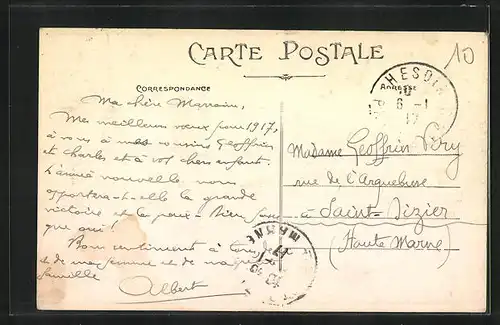 CARTE POSTALE
10
CORRESPONDANCE
ADRESSE
HESDIN
6 - 1
17
Ma chère Marraine,
Mes meilleurs vœux pour 1917,
à vous à mes cousins Geoffrin
et Charles et à vos chers enfants.
L'année nouvelle nous
apportera-t-elle la grande
victoire et la paix - bien
que oui!
Bons sentiments à tous
et de ma femme et de
famille
Albert
Madame Geoffrin Véry
rue de l'Arquebuse
à Saint-Dizier
(Haute Marne)
MARNE